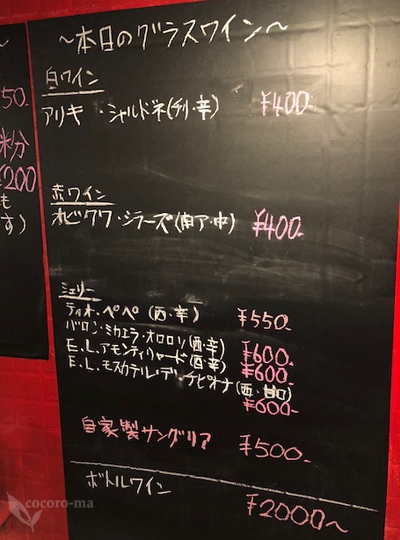 〜本日のグラスワイン〜
白ワイン
アリキ・シャルドネ(チリ・辛) ¥400-
赤ワイン
オビクワ・シラーズ(南ア・中) ¥400-
シェリー
ティオ・ペペ (西・辛) ¥550-
バロン・ミカエラ・オロロソ(西・辛) ¥600-
E.L.アモンティリャード(西・辛) ¥600-
E.L.モスカテル・デ・チピオナ(西・甘口)
¥600-
自家製サングリア ¥500-
ボトルワイン
¥2000〜
〜
50-
粉
¥200
も
す)
cocoro-ma